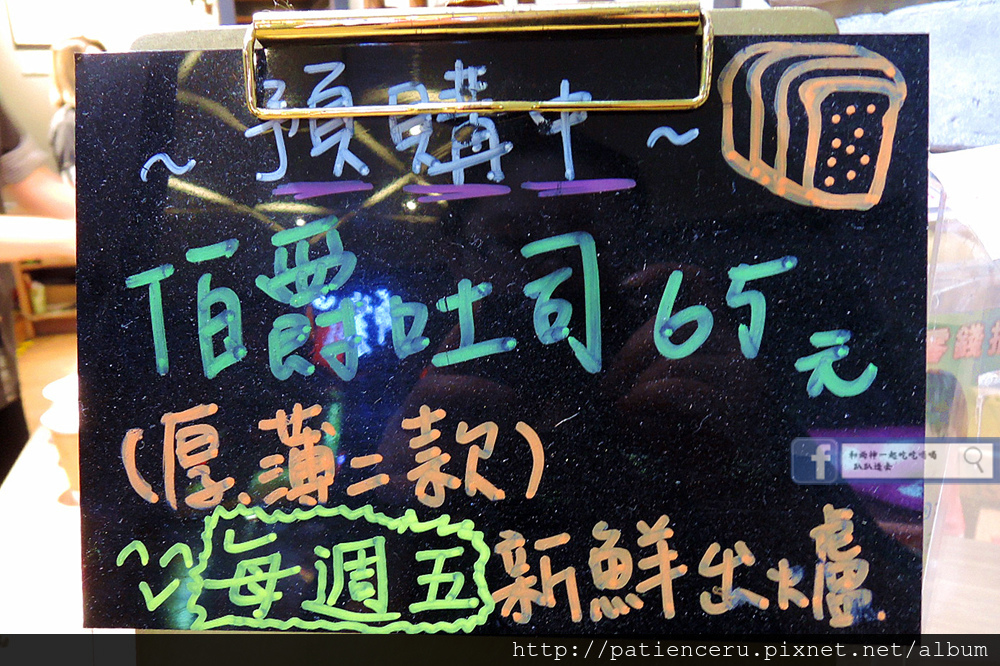 ~ 預購中 ~
頂爵吐司 65元
(厚.薄二款)
每週五 新鮮出爐.
和兩神一起吃吃喝喝
趴趴造去
http://patienceru.pixnet.net/album